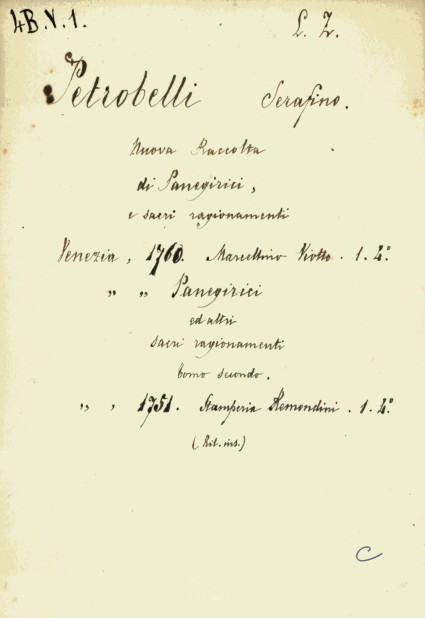 4B.V.1. L. Z.
Petrobelli Serafino.
Nuova Raccolta
di Panegirici,
e sacri ragionamenti
Venezia, 1760. Marcellino Piotto. 1. 4°.
" " Panegirici
ed altri
sacri ragionamenti
Tomo secondo.
" , 1751. Stamperia Remondini. 1. 4°.
(Ril. ins.)
C